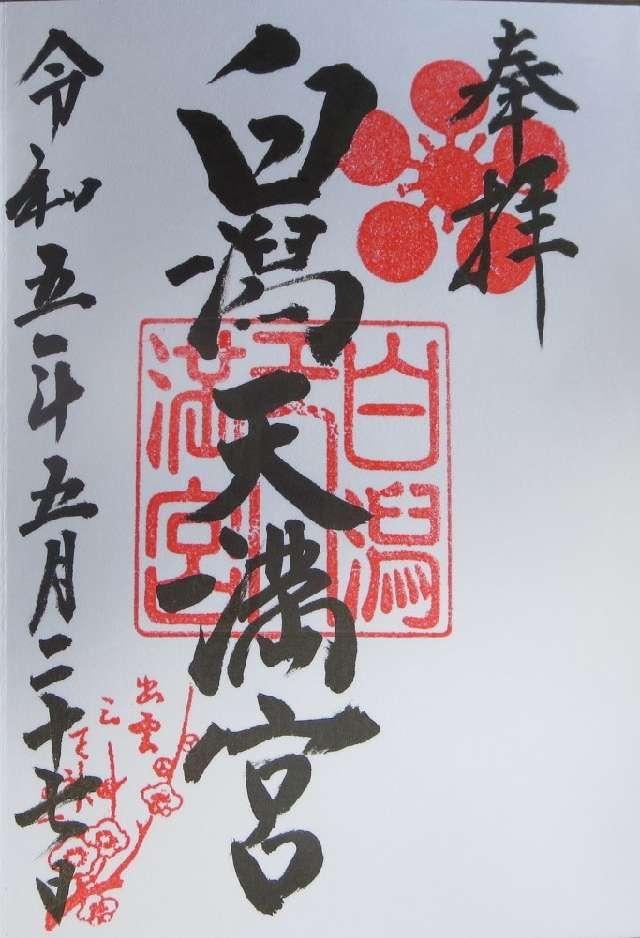 奉拝
白潟天満宮
令和五年五月二十七日
白潟
天
満宮
出雲
三